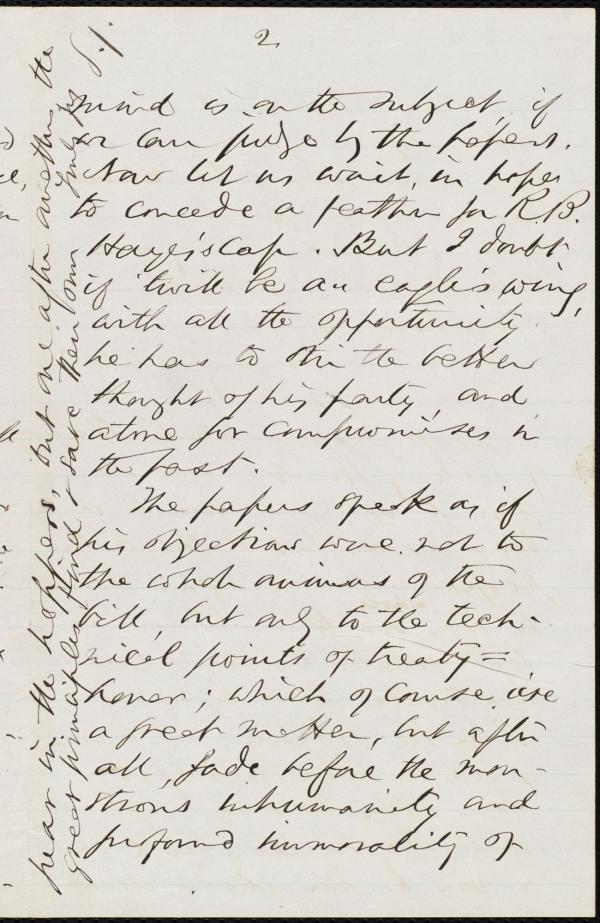 2
mind is on the subject, if
we can judge by the papers.
Now let us wait, in hopes
to concede a feather for R.B.
Hayes's cap. But I doubt
if 'twill be an eagle's wing,
with all the opportunity
he has to stir the better
thought of his party, and
atone for compromises in
the past.
The papers speak as if
his objections were not to
the whole animus of the
bill, but only to the tech-
nical points of treaty=
honor; which of course are
a great matter, but after
all, fade before the mon-
strous inhumanity and
profound immorality of
hear in the hoppers, but one after another, the
great principles find & save their own